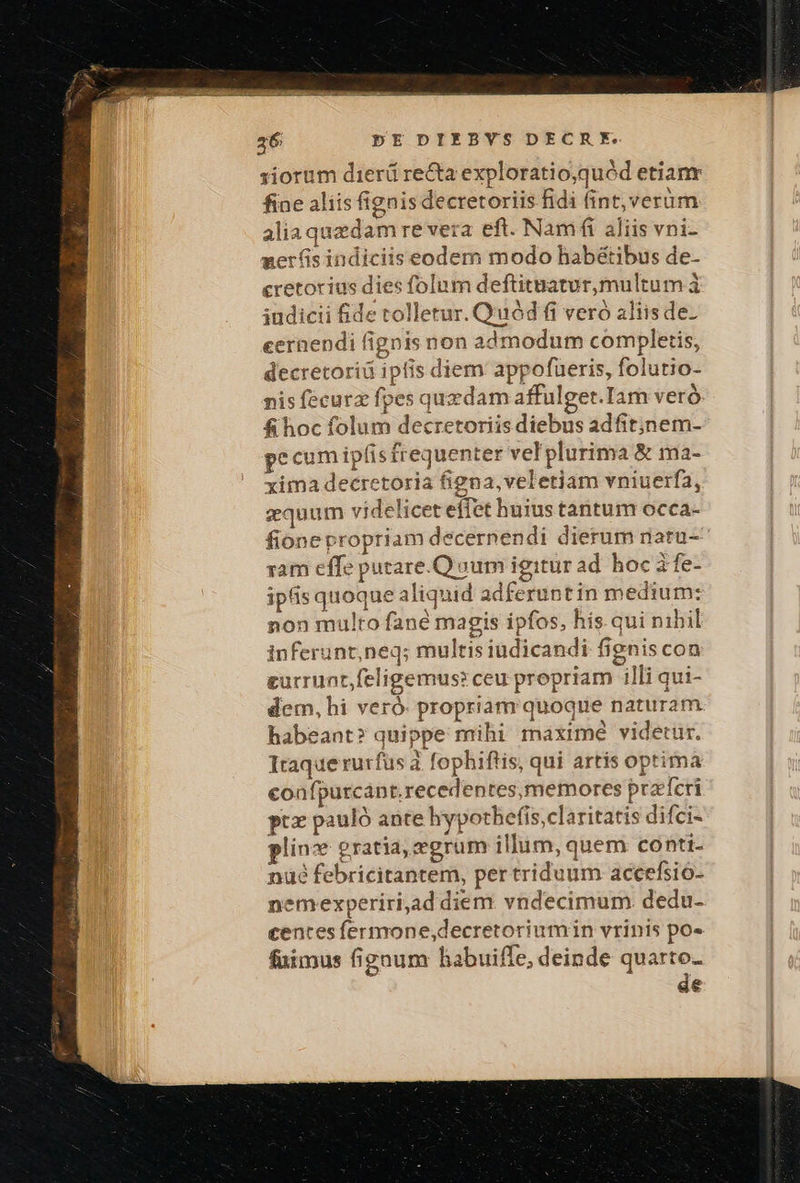 36 DE DIEBVS DECRE.
riorum dierũ recta exploratio,quòd etiam
ſine aliis ſignis decretoriis fidi ſint, verùm
alia quædam re vera eſt. Nam ſi aliis vni-
uerſis indiciis eodem modo habẽtibus de-
cretorius dies ſolum deſtituatur,multum à
iudicii fide tolletur. Quòd ſi verò aliis de-
cernendi ſignis non admodum completis,
decretoriũ ipſis diem appoſueris, ſolutio-
nis ſecuræ ſpes quædam affulget. Iam verò
ſi hoc ſolum decretoriis diebus adſit;nem-
pe cum ipſis frequenter vel plurima & ma-
xima decretoria ſigna, vel etiam vniuerſa,
æquum videlicet eſſet huius tantum occa-
ſione propriam decernendi dierum natu-
ram eſſe putare. Quum igitur ad hoc à ſe-
ipſis quoque aliquid adferunt in medium:
non multo ſanè magis ipſos, his qui nihil
inferunt,neq; multis iudicandi ſignis con
currunt,ſeligemus? ceu propriam illi qui-
dem, hi verò propriam quoque naturam
habeant? quippe mihi maximè videtur.
Itaque rurſus à ſophiſtis, qui artis optima
conſpurcant,recedentes,memores præſcri
ptæ paulò ante hypotheſis,claritatis diſci-
plinæ gratia, ægrum illum, quem conti-
nuè febricitantem, per triduum acceſsio-
nem experiri,ad diem vndecimum dedu-
centes ſermone,decretorium in vrinis po-
ſuimus ſignum habuiſſe, deinde quarto-
de